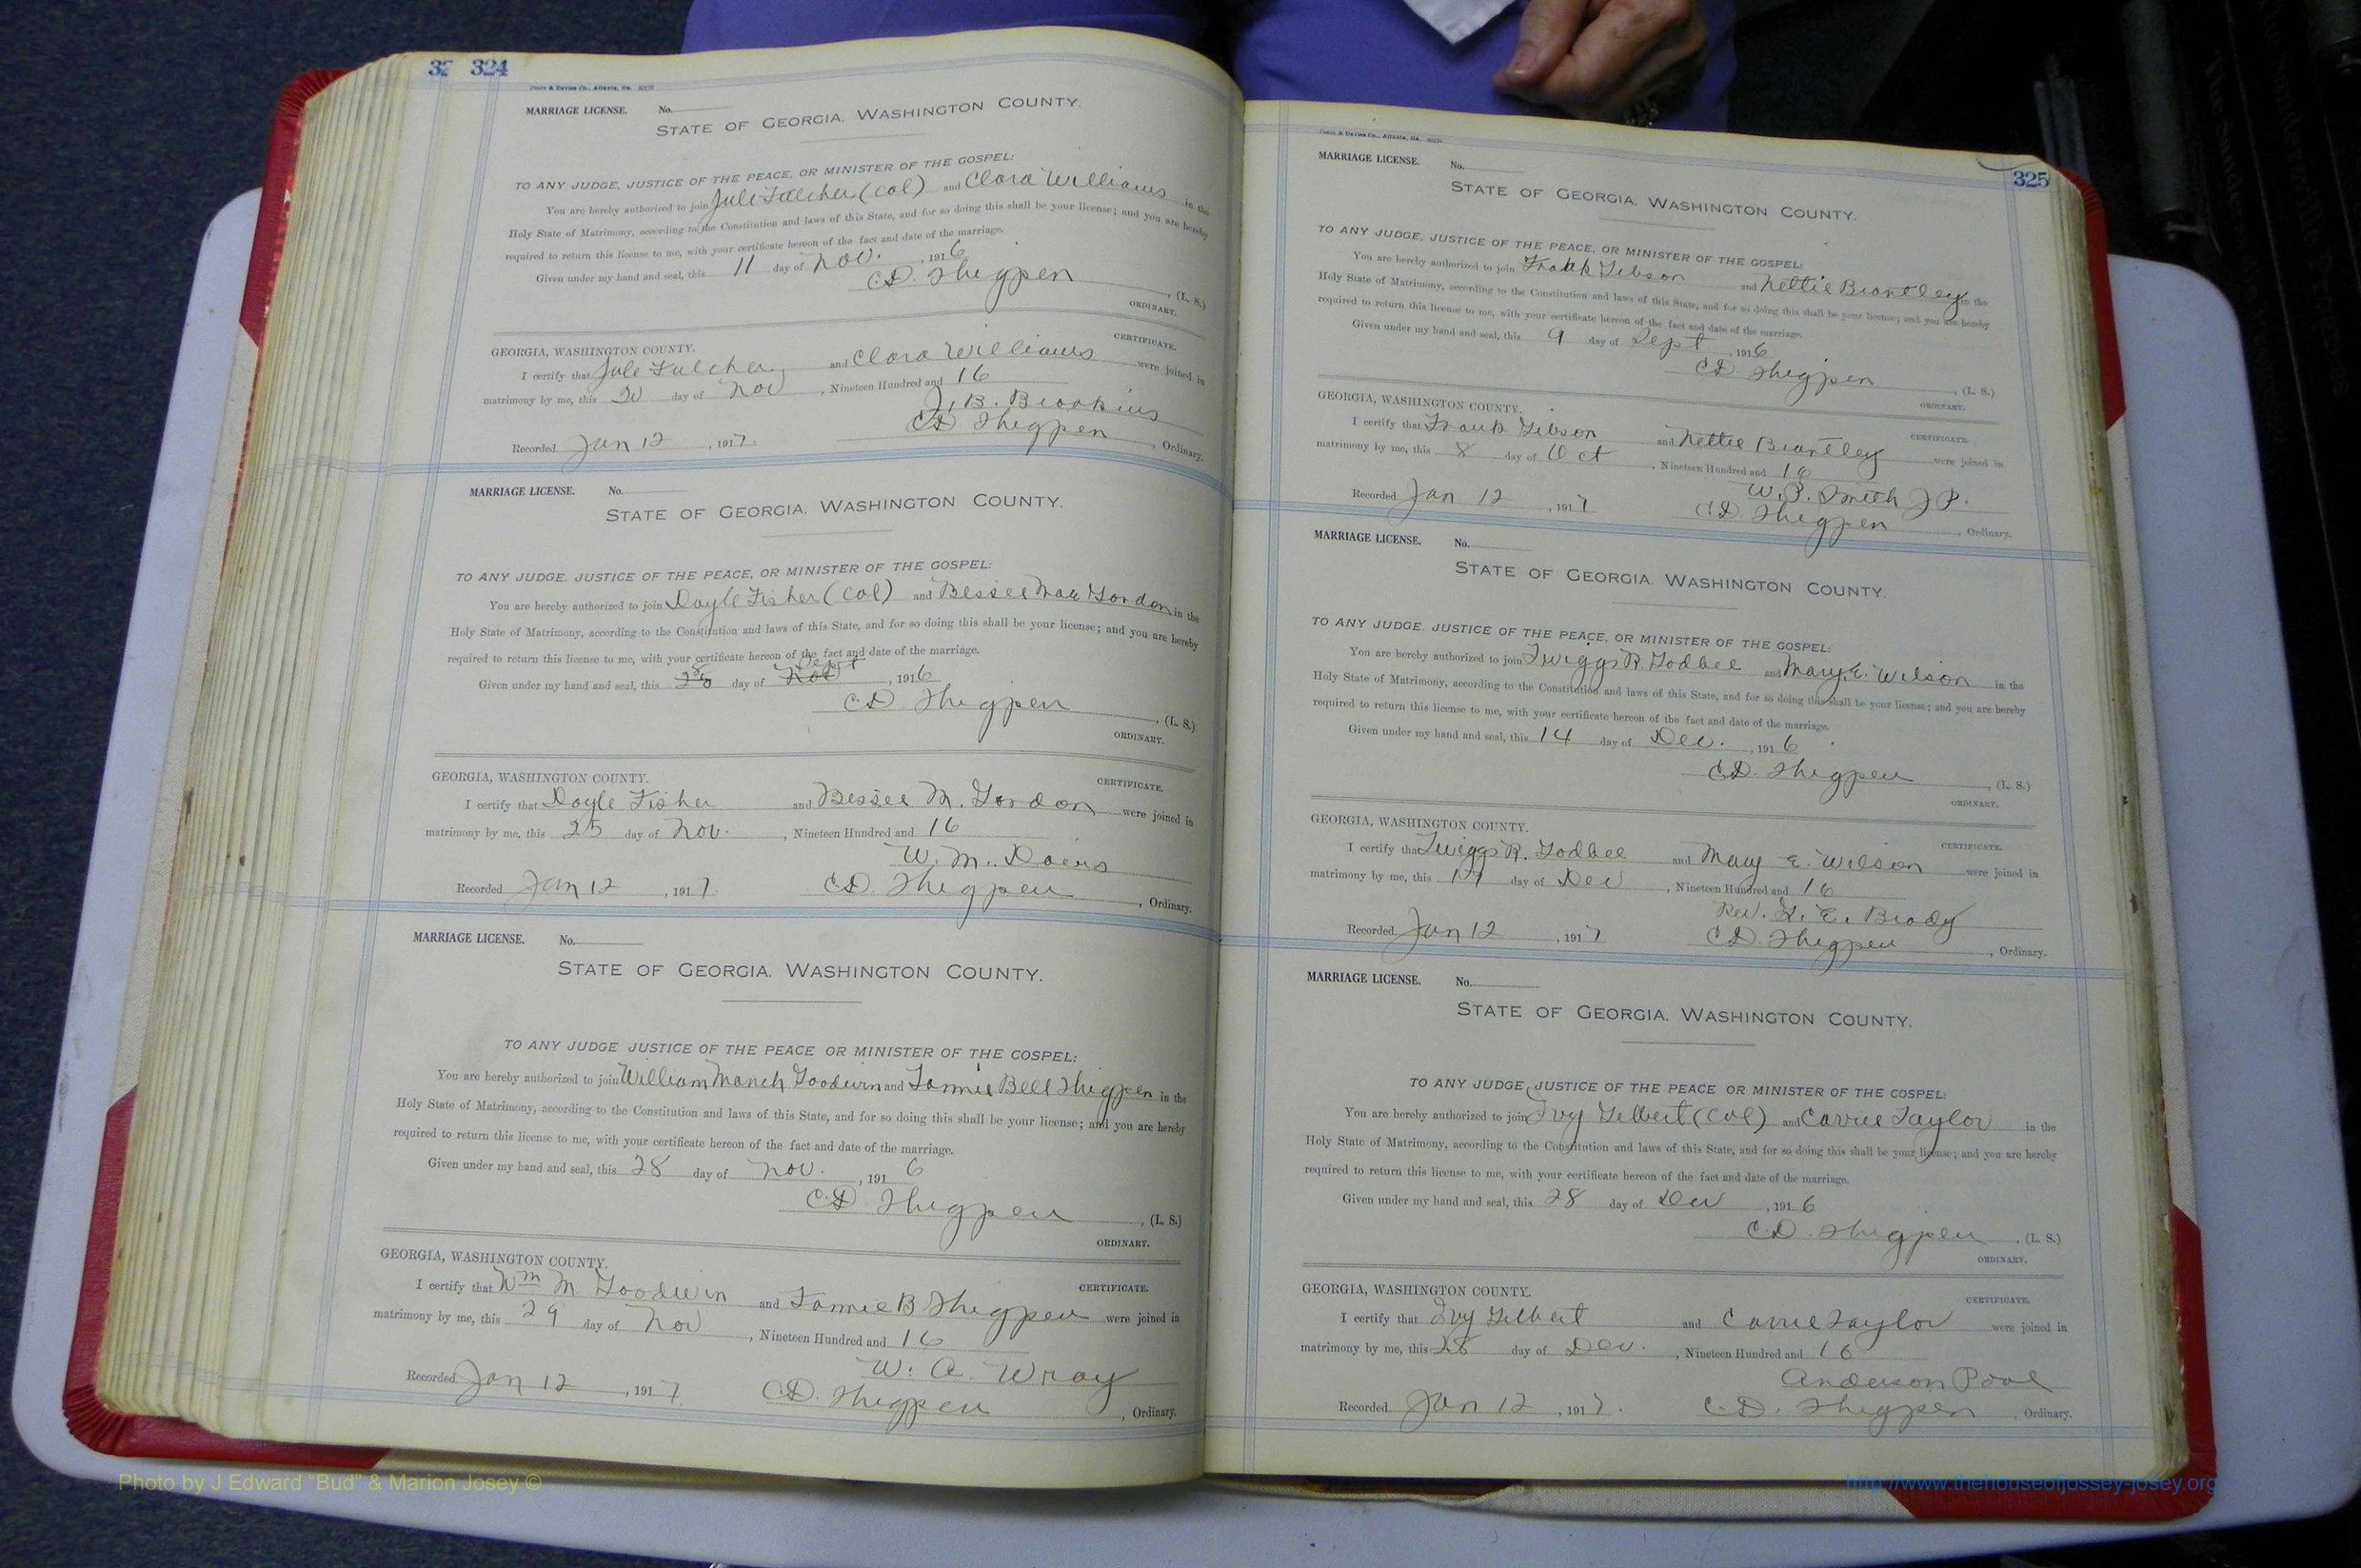 32 324
MARRIAGE LICENSE. No.
STATE OF GEORGIA, WASHINGTON COUNTY.
TO ANY JUDGE, JUSTICE OF THE PEACE, OR MINISTER OF THE GOSPEL:
You are hereby authorized to join Jule Fulcher (Col) and Clara Williams in the
Holy State of Matrimony, according to the Constitution and laws of this State, and for so doing this shall be your license; and you are hereby
required to return this license to me, with your certificate hereon of the fact and date of the marriage.
Given under my hand and seal, this 11 day of Nov. , 1916
C.D. Thigpen , (L. S.)
ORDINARY.
GEORGIA, WASHINGTON COUNTY. CERTIFICATE.
I certify that Jule Fulcher and Clara Williams were joined in
matrimony by me, this day of Nov , Nineteen Hundred and 16
J. B. Brookins
Recorded Jan 12 , 1917. CD Thigpen , Ordinary.
MARRIAGE LICENSE. No.
STATE OF GEORGIA, WASHINGTON COUNTY.
TO ANY JUDGE, JUSTICE OF THE PEACE, OR MINISTER OF THE GOSPEL:
You are hereby authorized to join Doyle Fisher (Col) and Bessie Mae Gordon in the
Holy State of Matrimony, according to the Constitution and laws of this State, and for so doing this shall be your license; and you are hereby
required to return this license to me, with your certificate hereon of the fact and date of the marriage.
Given under my hand and seal, this day of Sept , 1916
C.D. Thigpen , (L. S.)
ORDINARY.
GEORGIA, WASHINGTON COUNTY. CERTIFICATE.
I certify that Doyle Fisher and Bessie M. Gordon were joined in
matrimony by me, this 25 day of Nov. , Nineteen Hundred and 16
W. M. Davis
Recorded Jan 12 , 1917 C.D. Thigpen , Ordinary.
MARRIAGE LICENSE. No.
STATE OF GEORGIA, WASHINGTON COUNTY.
TO ANY JUDGE JUSTICE OF THE PEACE OR MINISTER OF THE GOSPEL:
You are hereby authorized to join William Manch Goodwin and Fannie Bell Thigpen in the
Holy State of Matrimony, according to the Constitution and laws of this State, and for so doing this shall be your license; and you are hereby
required to return this license to me, with your certificate hereon of the fact and date of the marriage.
Given under my hand and seal, this 28 day of Nov. , 1916
C.D. Thigpen , (L. S.)
ORDINARY.
GEORGIA, WASHINGTON COUNTY. CERTIFICATE.
I certify that Wm M. Goodwin and Fannie B Thigpen were joined in
matrimony by me, this 29 day of Nov , Nineteen Hundred and 16
W. A. Wray
Recorded Jan 12 , 1917. CD. Thigpen , Ordinary.
325
MARRIAGE LICENSE. No.
STATE OF GEORGIA, WASHINGTON COUNTY.
TO ANY JUDGE, JUSTICE OF THE PEACE, OR MINISTER OF THE GOSPEL:
You are hereby authorized to join Frank Gibson and Nettie Brantley in the
Holy State of Matrimony, according to the Constitution and laws of this State, and for so doing this shall be your license; and you are hereby
required to return this license to me, with your certificate hereon of the fact and date of the marriage.
Given under my hand and seal, this 9 day of Sept , 1916
C.D. Thigpen , (L. S.)
ORDINARY.
GEORGIA, WASHINGTON COUNTY. CERTIFICATE.
I certify that Frank Gibson and Nettie Brantley were joined in
matrimony by me, this 8 day of Oct , Nineteen Hundred and 16
W. P. Smith J P.
Recorded Jan 12 , 1917 C.D. Thigpen , Ordinary.
MARRIAGE LICENSE. No.
STATE OF GEORGIA, WASHINGTON COUNTY.
TO ANY JUDGE, JUSTICE OF THE PEACE, OR MINISTER OF THE GOSPEL:
You are hereby authorized to join Twiggs R. Godbee and Mary E. Wilson in the
Holy State of Matrimony, according to the Constitution and laws of this State, and for so doing this shall be your license; and you are hereby
required to return this license to me, with your certificate hereon of the fact and date of the marriage.
Given under my hand and seal, this 14 day of Dec. , 1916
C.D. Thigpen , (L. S.)
ORDINARY.
GEORGIA, WASHINGTON COUNTY. CERTIFICATE.
I certify that Twiggs R. Godbee and Mary E. Wilson were joined in
matrimony by me, this day of Dec , Nineteen Hundred and 16
Rev. E. Brady
Recorded Jan 12 , 1917 C.D. Thigpen , Ordinary.
MARRIAGE LICENSE. No.
STATE OF GEORGIA, WASHINGTON COUNTY.
TO ANY JUDGE, JUSTICE OF THE PEACE OR MINISTER OF THE GOSPEL:
You are hereby authorized to join Ivy Gilbert (Col) and Carrie Taylor in the
Holy State of Matrimony, according to the Constitution and laws of this State, and for so doing this shall be your license; and you are hereby
required to return this license to me, with your certificate hereon of the fact and date of the marriage.
Given under my hand and seal, this 28 day of Dec , 1916
C.D. Thigpen , (L. S.)
ORDINARY.
GEORGIA, WASHINGTON COUNTY. CERTIFICATE.
I certify that Ivy Gilbert and Carrie Taylor were joined in
matrimony by me, this 28 day of Dec. , Nineteen Hundred and 16
Anderson Pool
Recorded Jan 12 , 1917. C.D. Thigpen , Ordinary.
Photo by J Edward "Bud" & Marion Josey ©
http://www.thehouseofjossey-josey.org